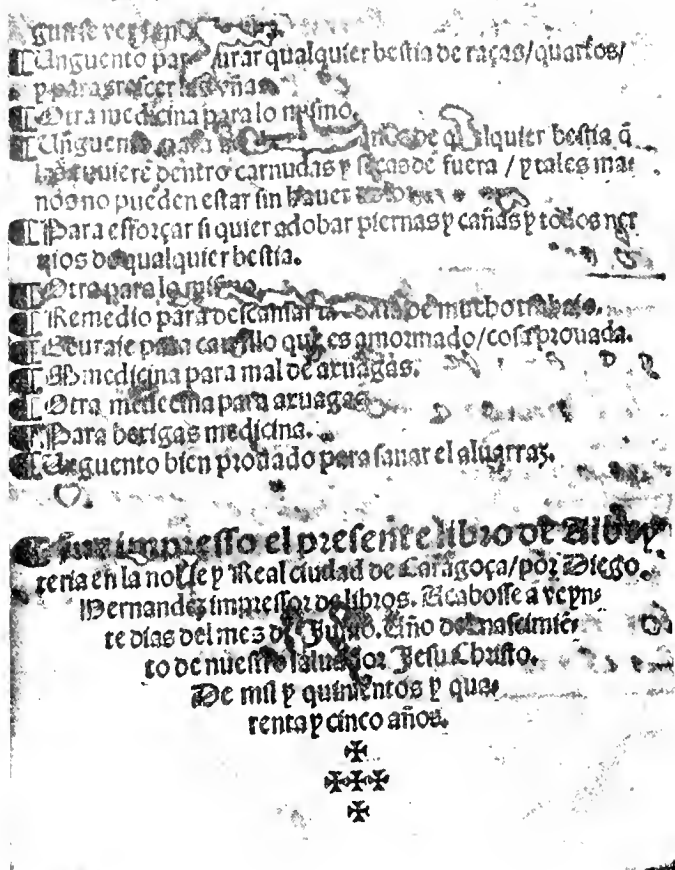 ¶ Unguento para curar qualquier bestia de raças/quartos/
y para crescer las vñas.
¶ Otra medicina para lo mismo.
¶ Unguento para qualquier bestia q̃
las tuuierẽ dentro carnudas y secas de fuera / y tales ma-
nos no pueden estar sin hauer
¶ Para esforçar si quier adobar piernas y cañas y todos ner
uios de qualquier bestia.
¶ Otra para lo mismo.
¶ Remedio para descansar la bestia de mucho trabajo.
¶ para cauallo que es amormado/cosa prouada.
¶ medicina para mal de axuagas.
¶ Otra medecina para axuagas
¶ Para bexigas medicina.
¶ Unguento bien prouado pera sanar el aluarraz.
¶ Fue impresso el presente libro de Albey
teria en la noble y Real ciudad de Caragoça/por Diego
Hernandez impressor de libros. Acabosse a veyn-
te dias del mes de Año del nascimiẽ-
to de nuestro saluador Jesu Christo.
De mil y quinientos y qua-
renta y cinco años.